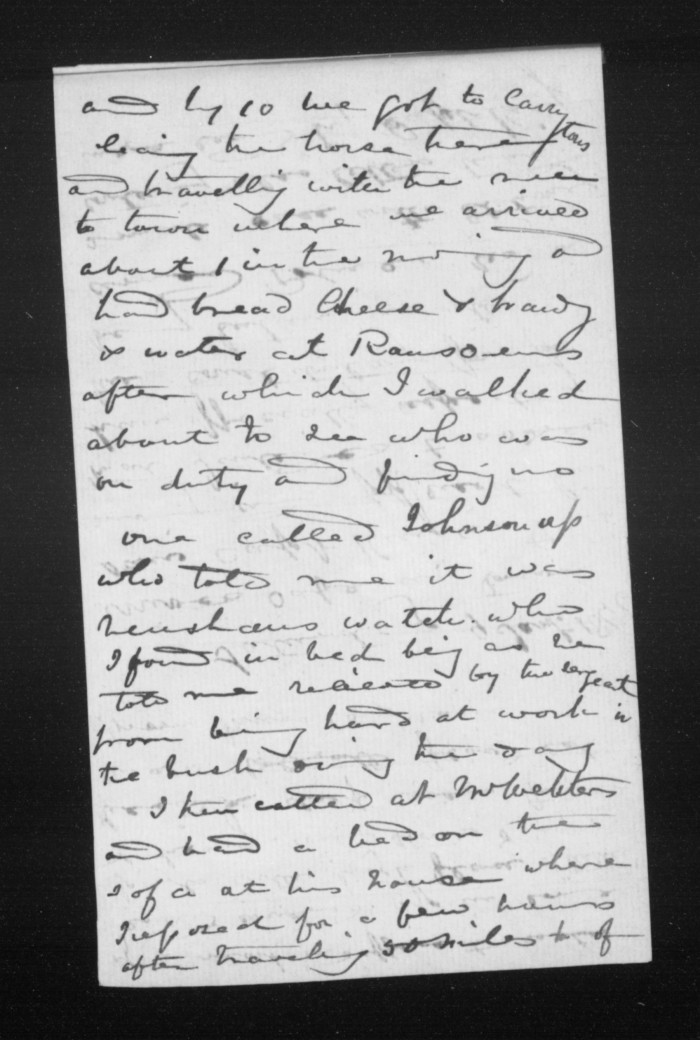 and by 10 we got to Carry
tons
leaving the horse there
and travelling with the
to town where we arrived
about 1 in the morning a
had bread Cheese & brandy
& water at Ransomes
after which I walked
about to see who was
on duty and finding no
one called Johnson up
who told me it was
watch. who
I found in bed being as he
told me released by the sergeant
from being hard at work in
the bush during the day
I then called at Mr Webbers
and had a bed on the
sofa at his house where
I reposed for a few hours
after traveling 50 miles & of